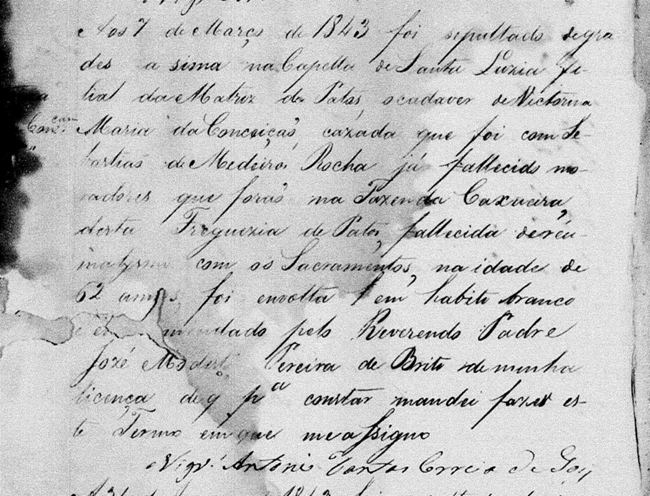 Aos 7 de Março de 1843 foi sepultado de gra
des a sima na Capella de Santa Luzia fi-
lial da Matriz de Patos, o cadaver de Victorina
Maria da Conceiçaõ, cazada que foi com Se-
bastiaõ de Medeiros Rocha já fallecido mo-
radores que foraõ na Fazenda Caxueira,
desta Freguezia de Patos, fallecida de reu-
matismo com os Sacramentos, na idade de
62 annos, foi envolta em habito branco
e encommendado pelo Reverendo Padre
José Modesto Pereira de Brito de minha
licença de q pª constar mandei fazer es-
te Termo em que me assigno
O Vigrº Antonio Dantas Correia de Goes